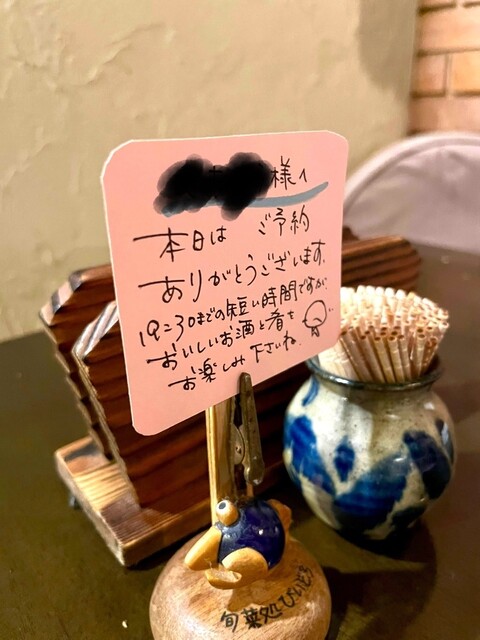 様へ
本日は ご予約
ありがとうございます。
19:30までの短い時間ですが、
おいしいお酒と肴を
お楽しみ下さいね。
旬菜処